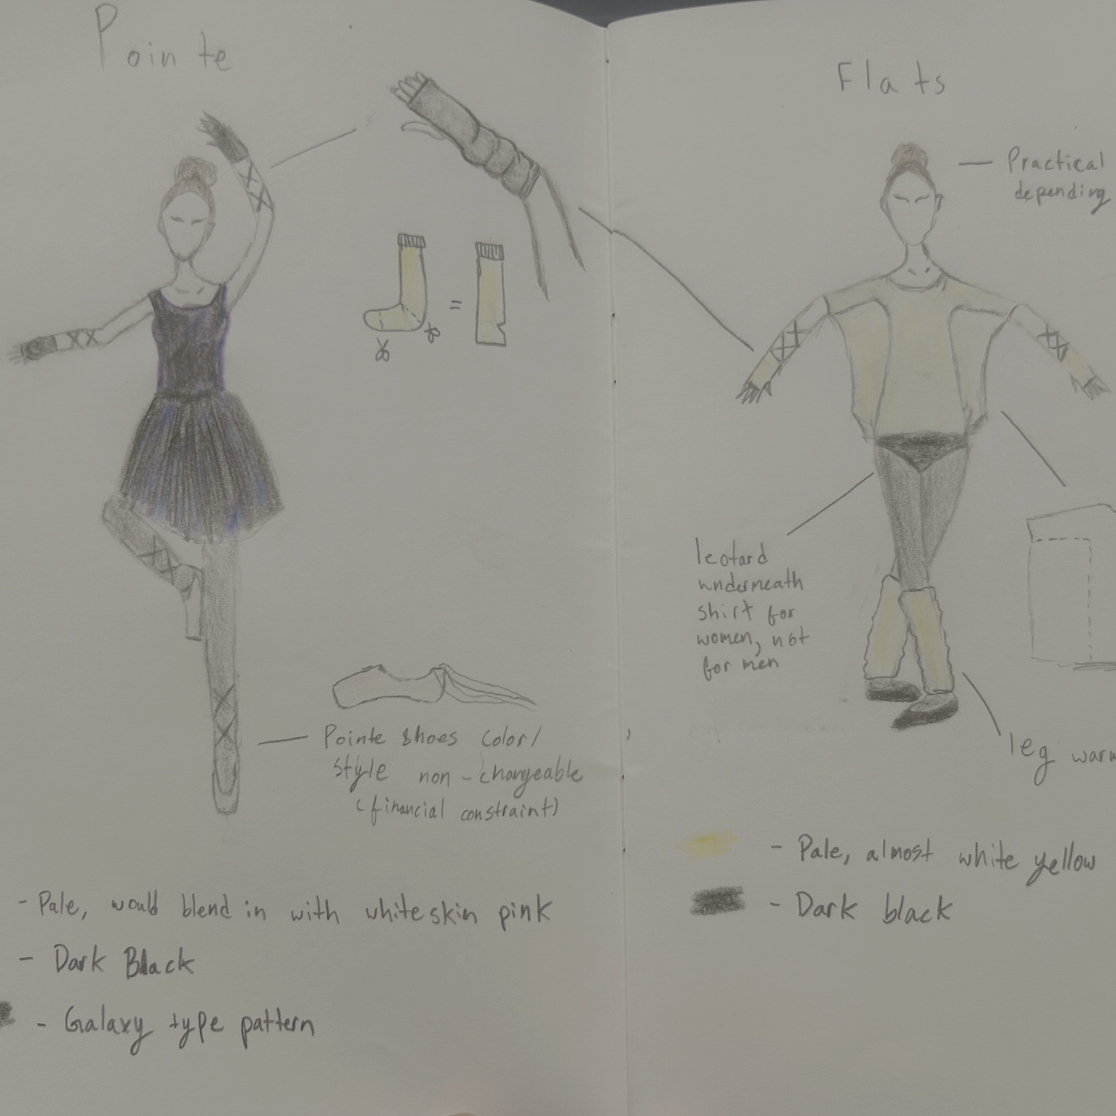 Pointe
Pointe shoes color/
style non-changeable
(financial constraint)
- Pale, would blend in with white skin pink
- Dark Black
- Galaxy type pattern
Flats
- Practical
depending
leotard
underneath
shirt for
women, not
for men
leg
- Pale, almost white yellow
- Dark black